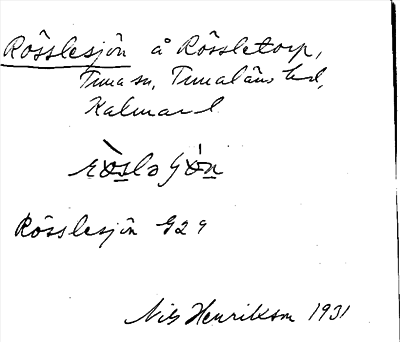 Rösslesjön å Rössletorp,
Tuna sn, Tunaläns hd,
Kalmar l

Rösslesjön G29
Nils Henrikson 1931